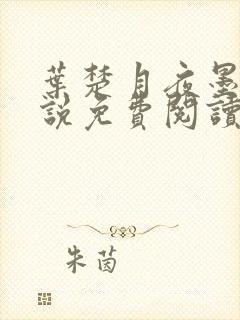 葉楚月夜墨
說免費閱讀
朱茵